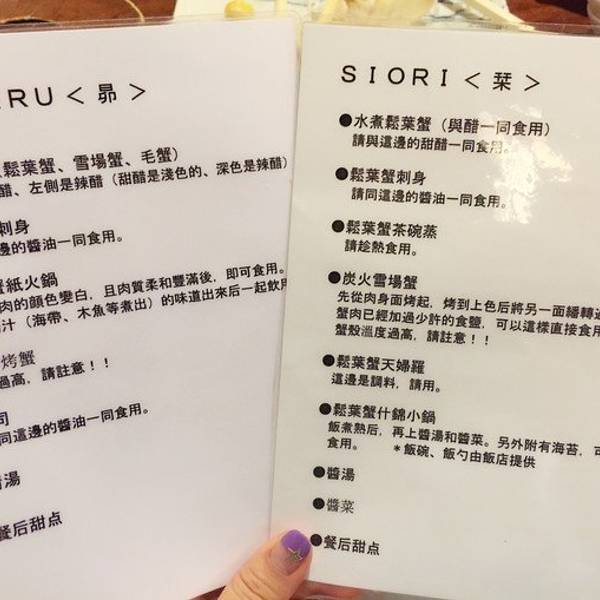 RU＜昴＞
鬆葉蟹、雪場蟹、毛蟹）
醋、左側是辣醋（甜醋是淺色的、深色是辣醋）
刺身
邊的醬油一同食用。
蟹紙火鍋
肉的顔色變白，且肉質柔和豐滿後，即可食用。
汁（海帶、木魚等煮出）的味道出來后一起飲用
烤蟹
過高，請註意！！
司
同這邊的醬油一同食用。
湯
餐后甜点
SIORI＜栞＞
●水煮鬆葉蟹（與醋一同食用）
請與這邊的甜醋一同食用。
●鬆葉蟹刺身
請同這邊的醬油一同食用。
●鬆葉蟹茶碗蒸
請趁熱食用。
●炭火雪場蟹
先從肉身面烤起，烤到上色后將另一面繙轉過
蟹肉已經加過少許的食鹽，可以這樣直接食用
蟹殼溫度過高，請註意！！
●鬆葉蟹天婦羅
這邊是調料，請用。
●鬆葉蟹什錦小鍋
飯煮熟后，再上醬湯和醬菜。另外附有海苔，可
食用。　＊飯碗、飯勺由飯店提供
●醬湯
●醬菜
●餐后甜点